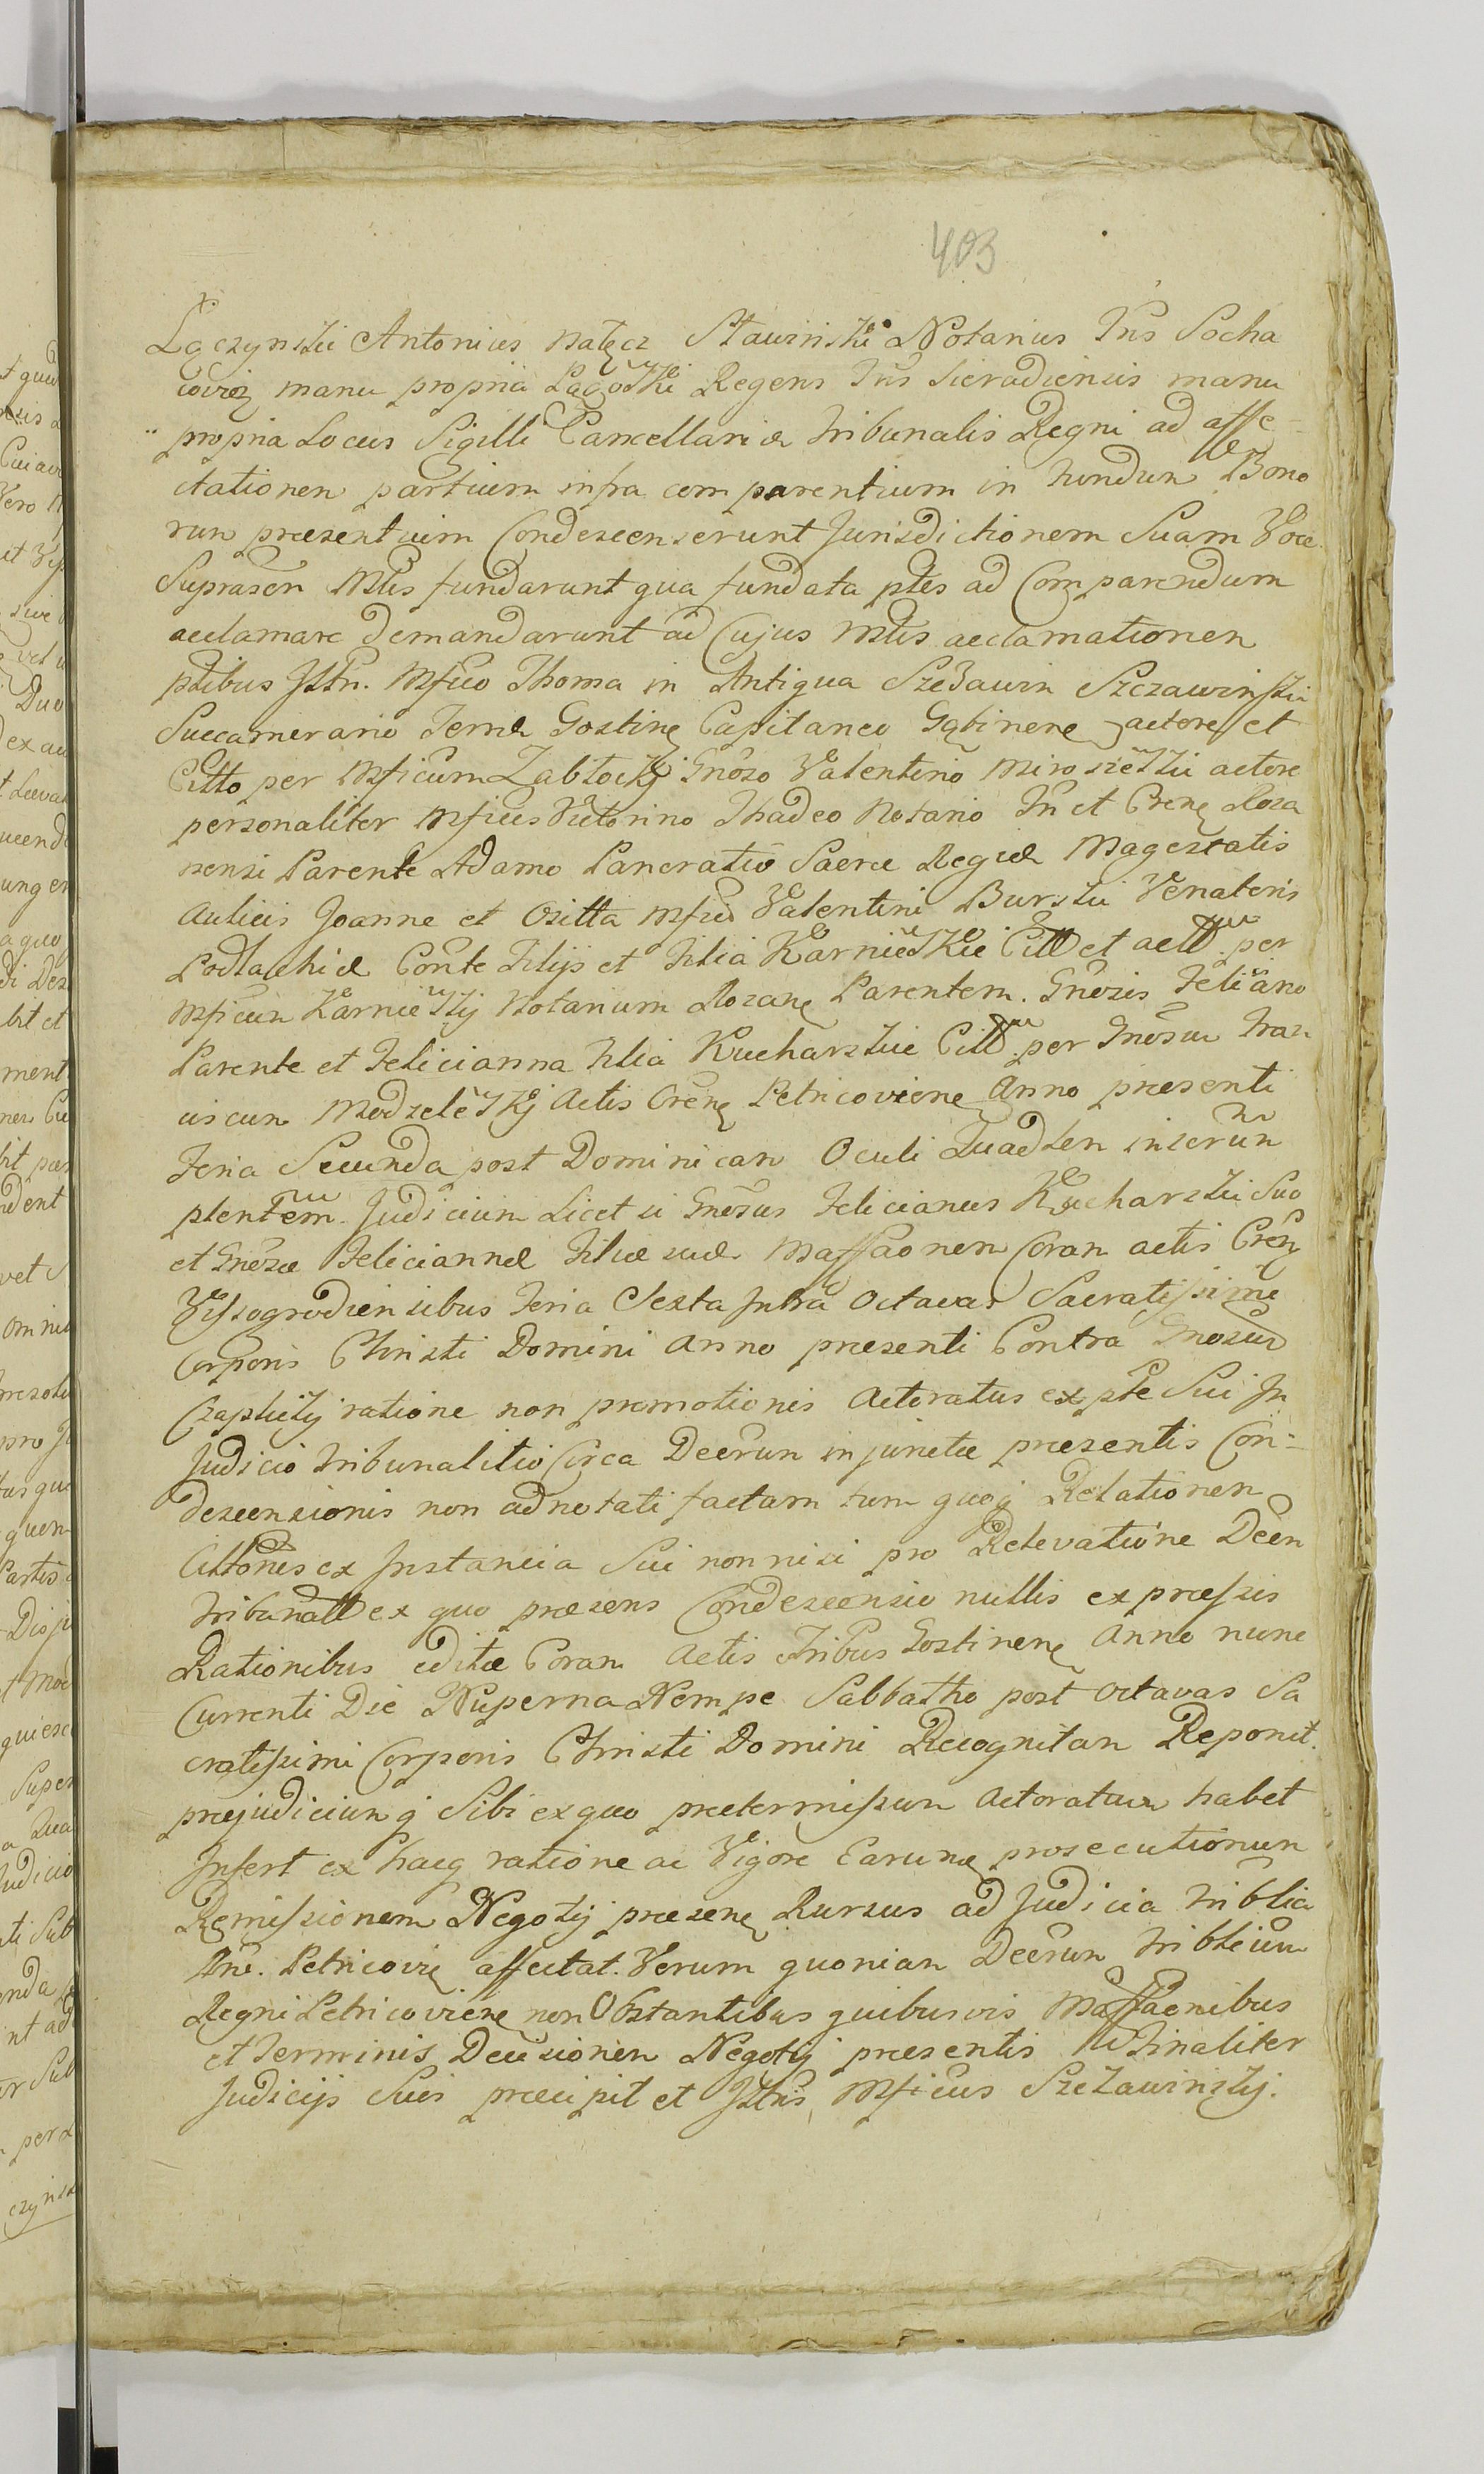 403
Łączynski Antonius Nałęcz Sławinski Notarius Trīs Socha
covien manu propria Łągowski Regens Trīs Sieradiensis manu
propria Locus Sigilli Cancellariæ Tribunalis Regni ad affe=
ctationem partium infra comparentium in fundum Bono
rum præsentium Condescenserunt Jurisdictionem Suam Voce
Suprascn Mlis fundarunt qua fundata ptes ad Comparendum
acclamare demandarunt ad Cujus Mlis acclamationem
ptibus Illn. Mfico Thoma in Antiqua Szczawin Szczawinski
Succamerario Terræ Gostinen Capitaneo Gąbinen actore et
Citto per Mficum Zabłocki Gnoso Valentino Miroszewski actore
personaliter Mficis Victorino Thadeo Notario Tri et Cren Roza
nensi Parente Adamo Pancratio Sacræ Regiæ Magestatis
Aulicis Joanne et Ositta Mfici Valentini Burski Venatoris
Podlachiæ Conte Filijs et Filia Karniewskie Citt et actt per
Mficum Karniewskij Notarium Rozanen Parentem. Gnosis Feliciano
Parente et Felicianna Filia Kucharskie Citt per Gnosum Fran
ciscum Modzelewskj Actis Cren Petricovien Anno præsenti
Feria Secunda post Dominicam Oculi Quadlen insertum
plentem. Judicium Licet si Gnosus Felicianus Kucharski Suo
et Gnosæ Feliciannæ Filiæ suæ Maffaonem Coram actis Cren
Vissogrodiensibus Feria Sexta Intra Octavas Sacratissime
Corporis Christi Domini Anno præsenti Contra Gnosum
Czaplickij ratione non promotionis Actoratus ex pte Sui In
Judicio Tribunalitio Circa Decrum injunctæ præsentis Con=
descensionis non adnotati factam tum quoq Relationem
Cittones ex Instancia Sui non nisi pro Relevatione Decn
Tribunall ex quo præsens Condescensio nullis expræssis
Rationibus editæ Coram Actis Tribus Gostinen Anno nunc
Currenti Die Nuperna Nempe Sabbatho post Octavas Sa
cratissimi Corporis Christi Domini Recognitam Reponit.
præjudicium q Sibi ex quo prætermissum Actoratum habet
Infert ex hacq ratione ac Vigore Earum prosecutionum
Remissionem Negotij præsen Rursus ad Judicia Triblia
Petricovien affectat. Verum quoniam Decrum Triblium
Regni Petricovien non Obstantibus quibusvis Maffaonibus
et Terminis Decisionem Negotij præsentis Finaliter
Judicijs Suis præcipit et Illris Mficus Szczawinskij.